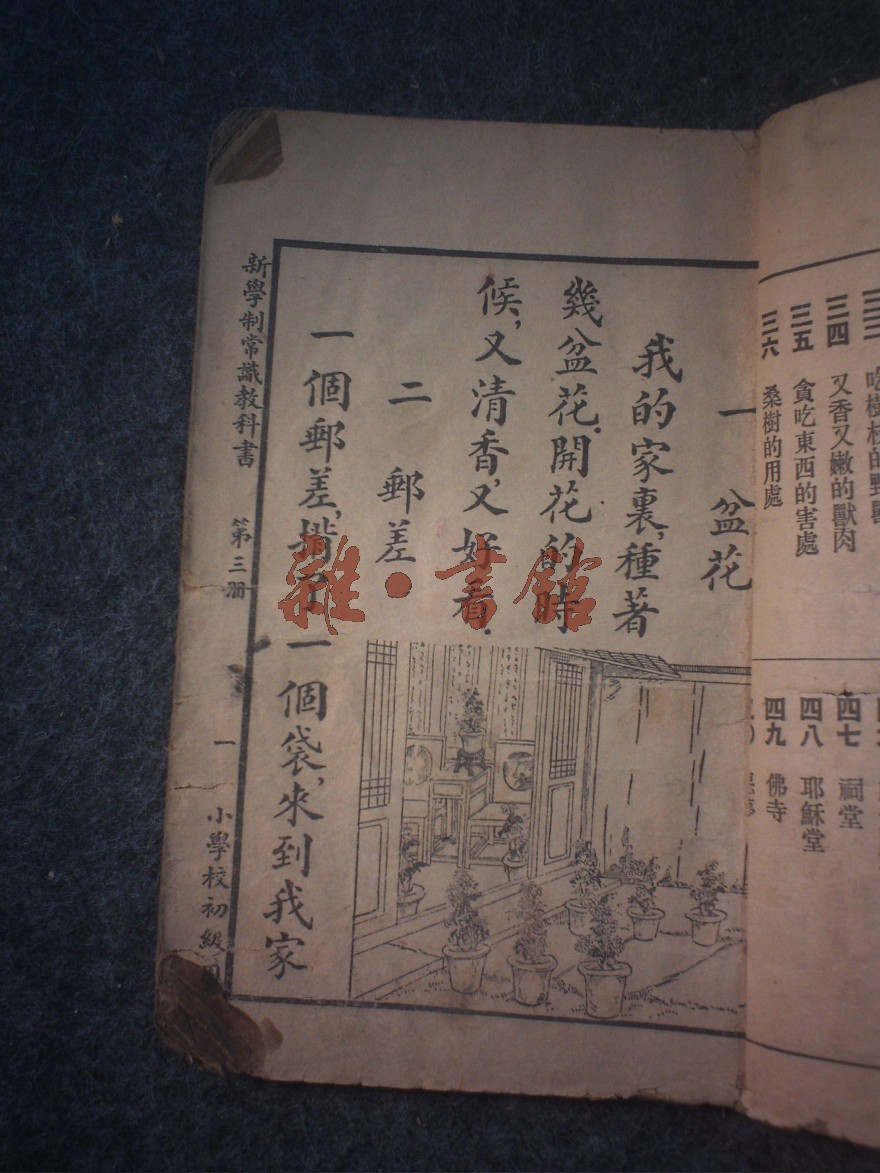 三四 又香又嫩的獸肉
三五 貪吃東西的害處
三六 桑樹的用處
四七 祠堂
四八 耶穌堂
四九 佛寺
一 盆花
我的家裏,種著
幾盆花.開花的時
候,又清香,又好看.
二 郵差
一個郵差,揹了一個袋,來到我家
新學制常識教科書 第三册 一 小學校初級用
雜·書館